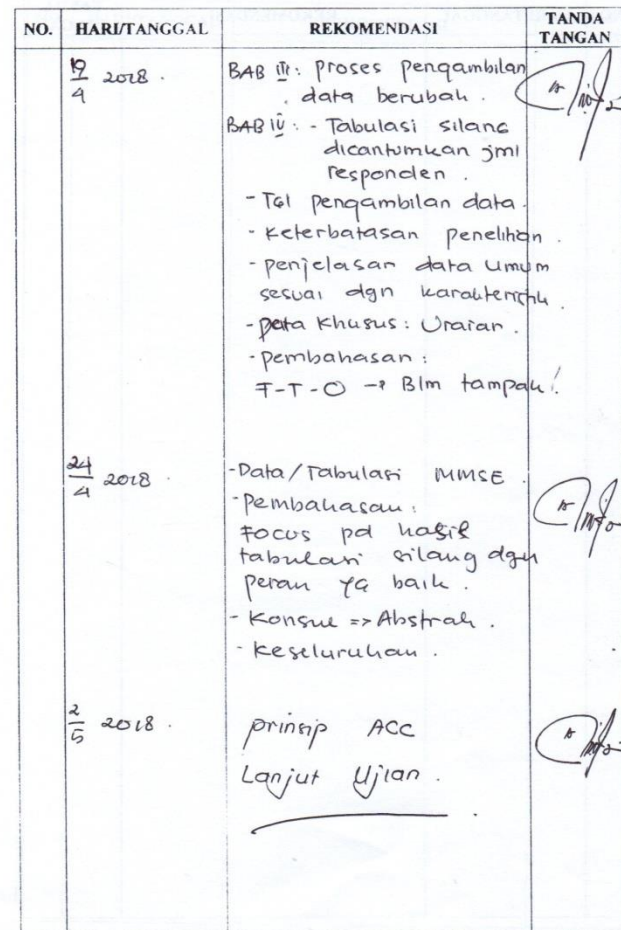 NO. HARI/TANGGAL REKOMENDASI TANDA TANGAN
19/4 2018. BAB III: proses pengambilan
data berubah.
BAB IV: - Tabulasi silang
dicantumkan jml
responden.
- Tgl pengambilan data.
- Keterbatasan penelitian.
- penjelasan data umum
sesuai dgn karakteristik.
- Data Khusus: Uraian.
- pembahasan:
F-T-O → Blm tampak!
24/4 2018. - Data/Tabulasi MMSE.
- Pembahasan:
Focus pd hasil
tabulasi silang dgn
peran yg baik.
- Konsul => Abstrak.
- Keseluruhan.
2/5 2018. prinsip ACC
Lanjut Ujian.